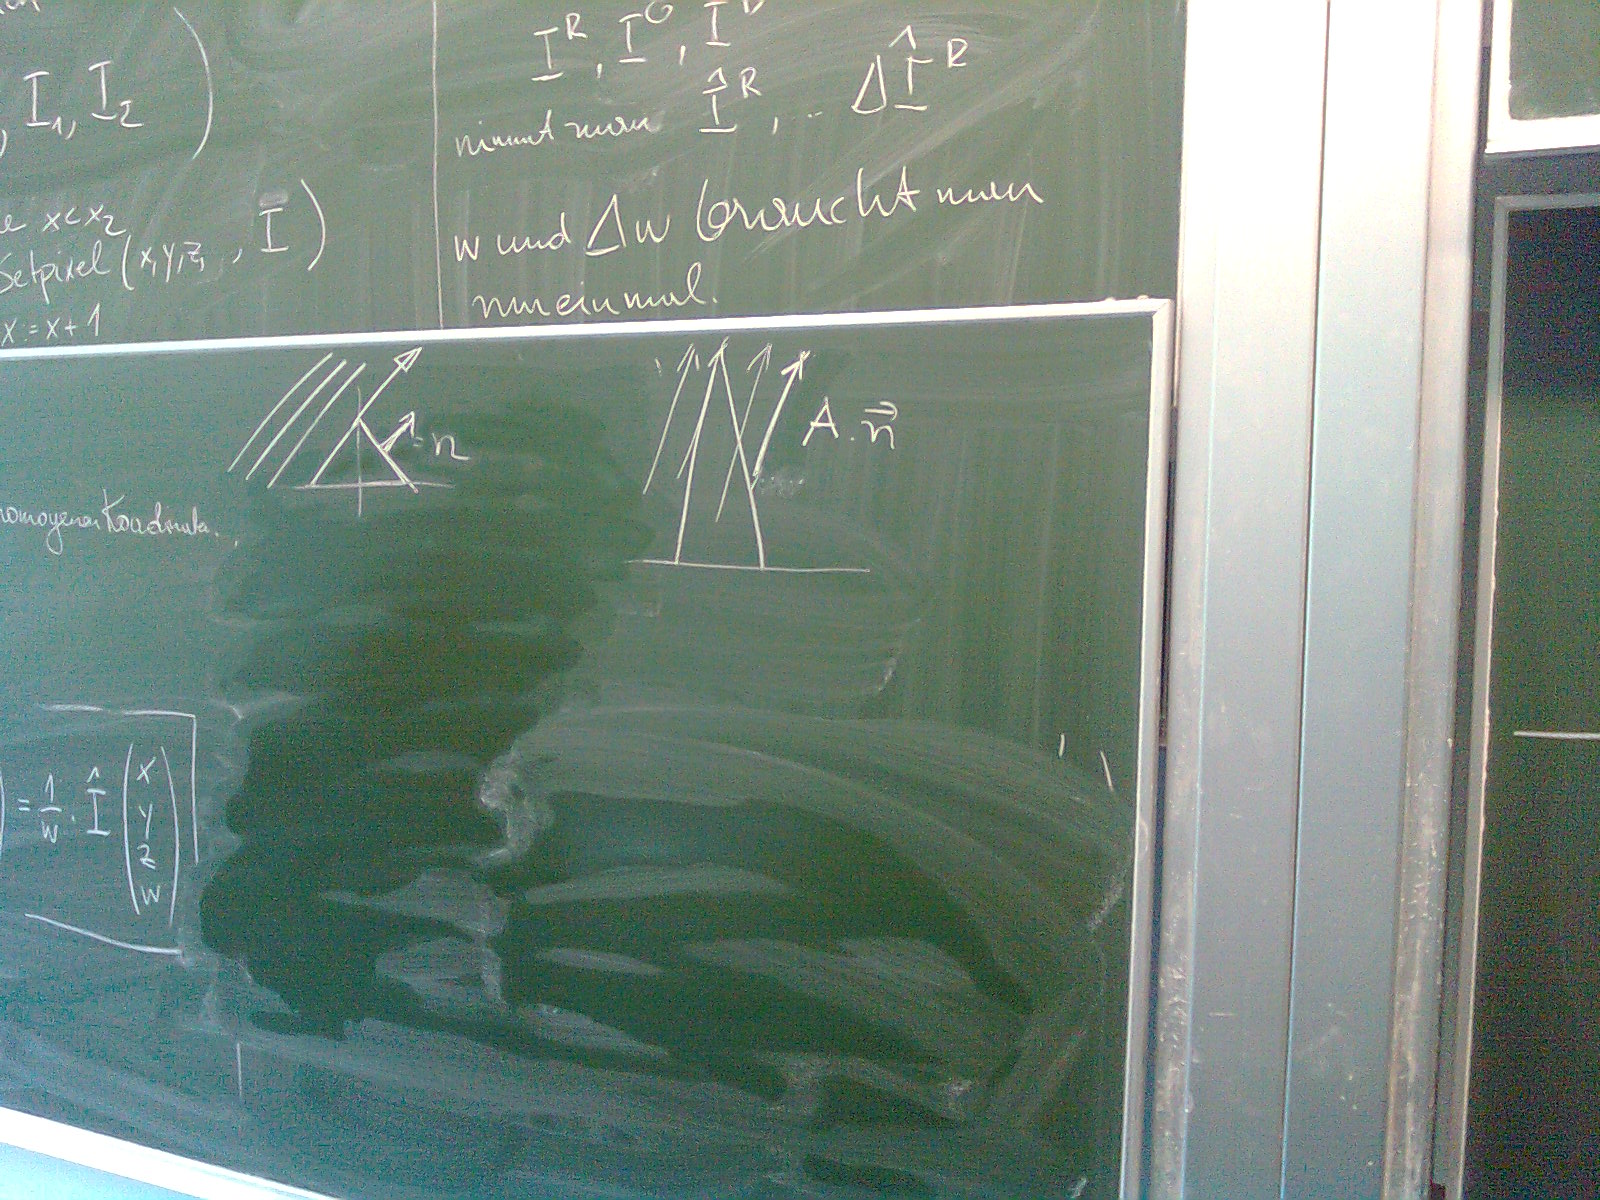 , I₁, I₂ )
x < x₂
Setpixel (x, y, z, , Ī )
x := x + 1
I^R, I^G, I
nimmt man Î^R, .. ΔÎ^R
w und Δw braucht man
nur einmal.
n
A · n⃗
homogenen Koordinate.
) = 1/w · Î (x y z w)